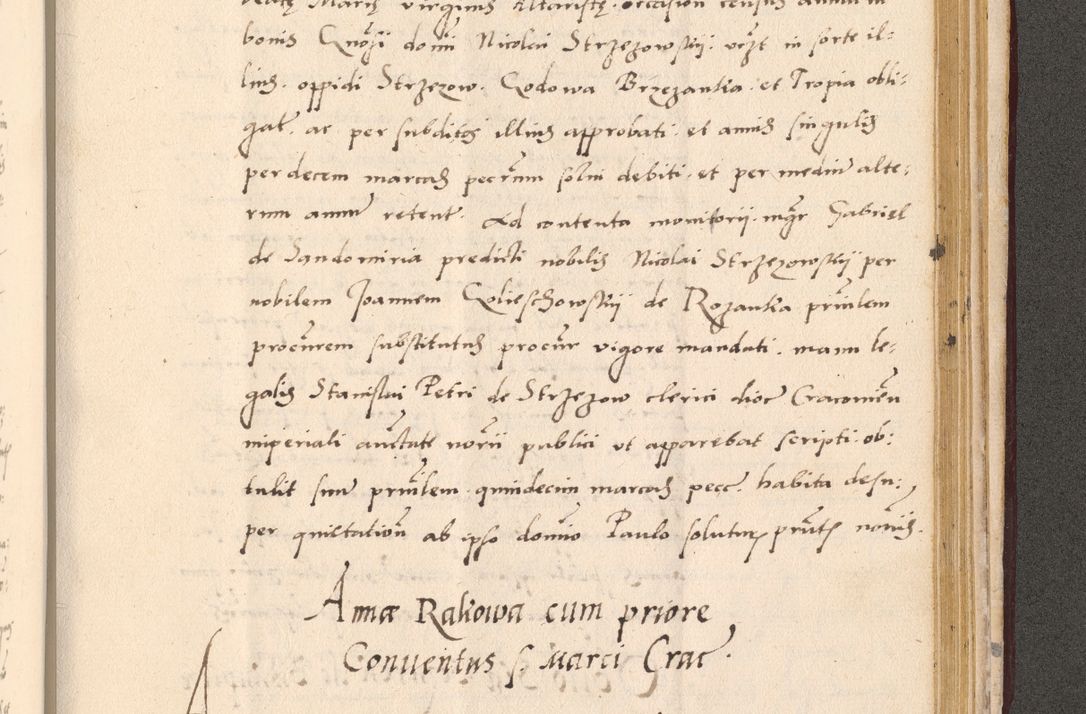 Marie virginis Altariste occasion census annui in
bonis Gnosi domi Nicolai Strzezowskij vrzt in sorte il-
lius oppidi Strzezow Godowa Brzezanka et Tropia obli-
gat ac per subditos illius approbati et annis singulis
per decem marcas pecunium solui debiti et per mediu alte-
rum annu retent Ad contenta monitorij mgr Gabriel
de Sandomiria predicti nobilis Nicolai Strzezowskij per
nobilem Joannem Golieschowskij de Rozanka principalem
procurem substitutus procur vigore mandati manu le-
galis Stanislai Petri de Strzezow clerici dioc Cracouien
imperiali auctate notarii publici ut apparebat scripti ob-
tulit suu quindecim marcas pecc habita desu-
per quictation ab ipso domino Paulo solutur pntes notariis
Annæ Rakowa cum priore
Conuentus S Marci Crac